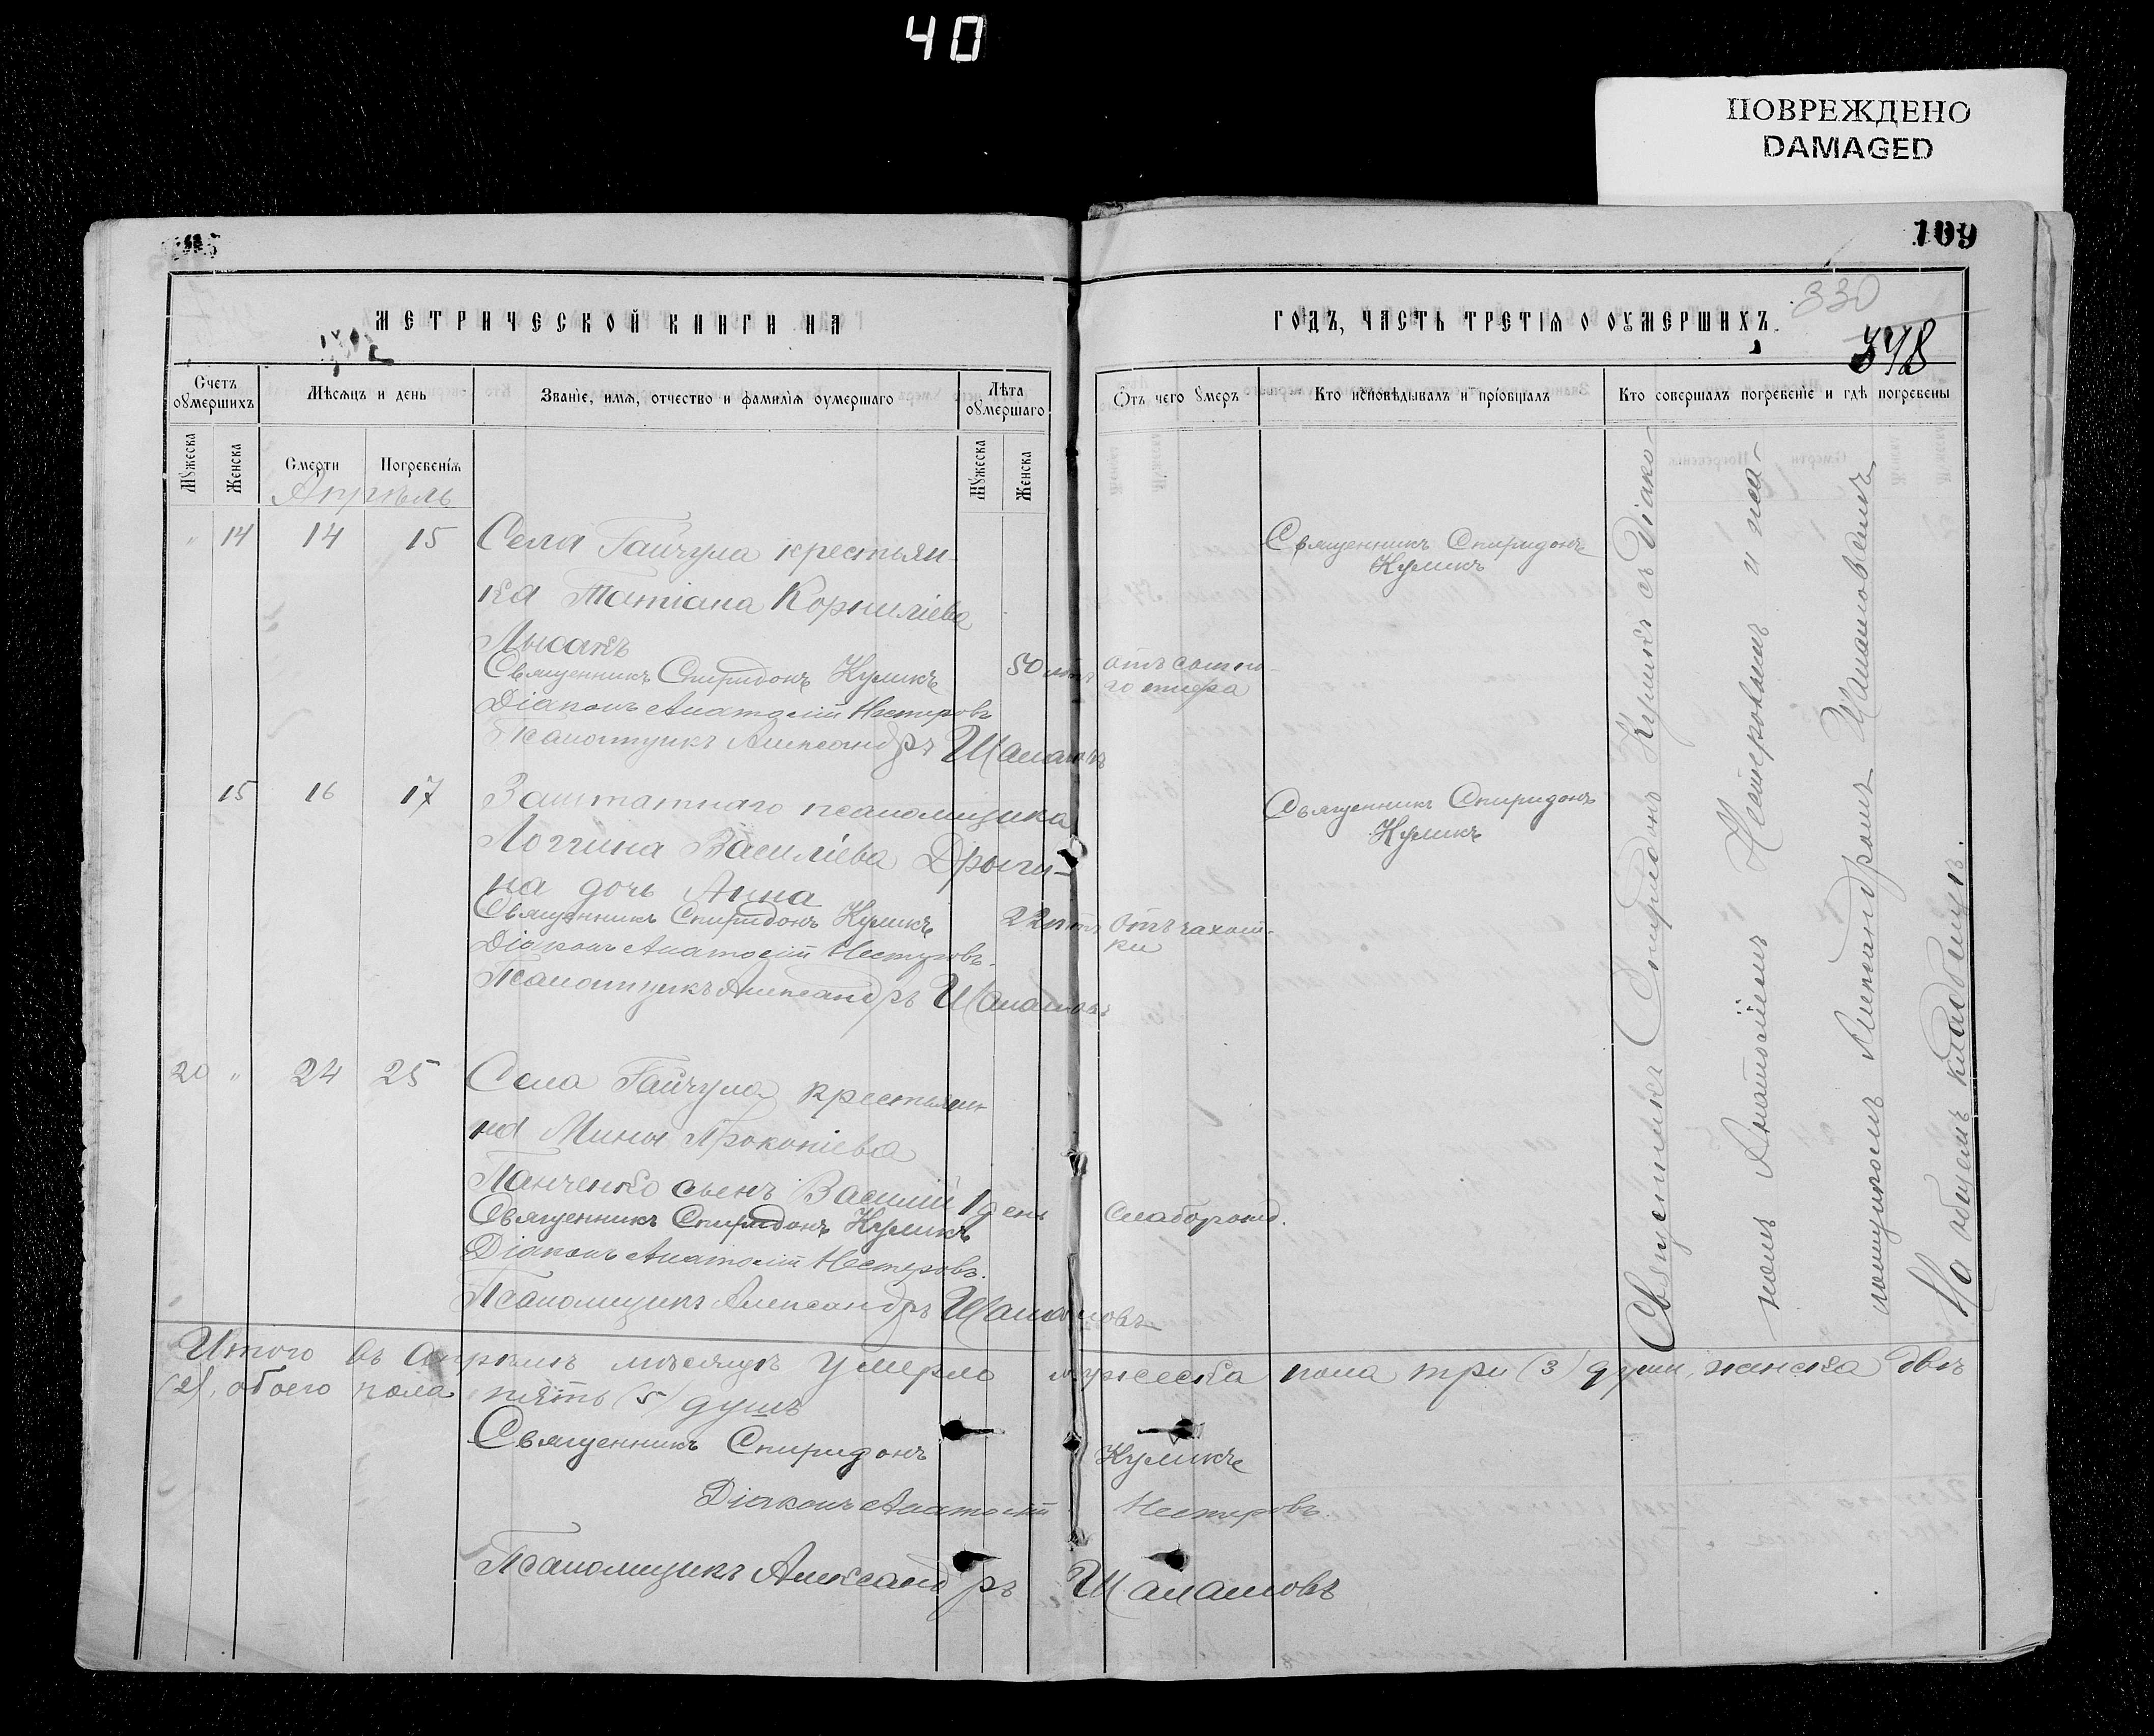 40
ПОВРЕЖДЕНО
DAMAGED
109
330
348
МЕТРИЧЕСКОЙ КНИГИ НА
ГОДЪ, ЧАСТЬ ТРЕТІѦ О ОУМЕРШИХЪ.
Счетъ оумершихъ
Мѣсѧцъ и день
Званіе, имѧ, отчество и фамиліѧ оумершаго
Лѣта оумершаго
Отъ чего умеръ
Кто исповѣдывалъ и пріобщалъ
Кто совершалъ погребеніе и гдѣ погребены
Мужеска
Женска
Смерти
Погребеніѧ
Мужеска
Женска
Апрѣль
" 14 14 15 Села Гайчула крестьян-
ка Татіана Корниліева
Лысакъ
Священникъ Спиридонъ Куликъ
Діаконъ Анатолій Нестеровъ
Псаломщикъ Александръ Шаламовъ
50 лѣтъ
Священникъ Спиридонъ
Куликъ
15 16 17 Заштатнаго псаломщика
Логгина Василіева Дрыги-
на дочь Анна
Священникъ Спиридонъ Куликъ
Діаконъ Анатолій Нестеровъ.
Псаломщикъ Александръ Шаламовъ
22 лѣтъ
Отъ чахот-
ки
Священникъ Спиридонъ
Куликъ
20 " 24 25 Села Гайчула крестьяни-
на Мины Прокопіева
Панченко сынъ Василій
1 день
Слаборожд.
Священникъ Спиридонъ Куликъ
Діаконъ Анатолій Нестеровъ.
Псаломщикъ Александръ Шаламовъ
Священникъ Спиридонъ Куликъ съ Діако-
номъ Анатоліемъ Нестеровымъ и пса-
ломщикомъ Александромъ Шаламовымъ
На общемъ кладбищѣ.
Итого въ Апрѣлѣ мѣсяцѣ умерло мужеска пола три (3) души, женска двѣ
(2), обоего пола пять (5) душъ
Священникъ Спиридонъ Куликъ
Діаконъ Анатолій Нестеровъ.
Псаломщикъ Александръ Шаламовъ